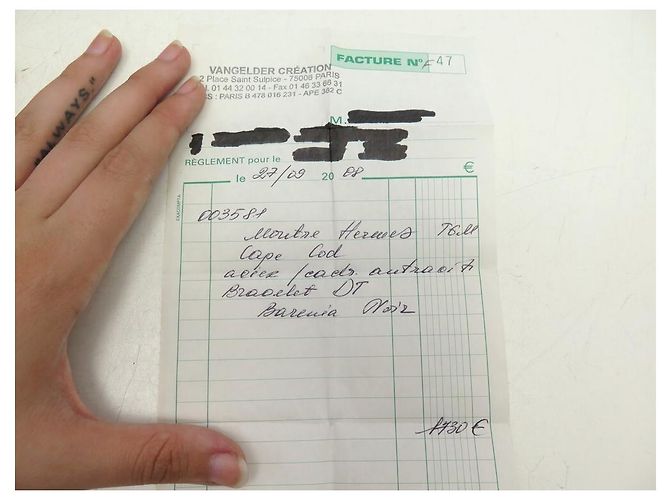 "ALWAYS."
VANGELDER CRÉATION
2 Place Saint Sulpice - 75008 PARIS
01 44 32 00 14 - Fax 01 46 33 66 31
: PARIS B 478 016 231 - APE 362 C
FACTURE N° F 47
M.
RÈGLEMENT pour le
le 27/09 2008
€
EXACOMPTA
003581
Montre Hermes TGM
Cape Cod
acier / cadr. antracit
Bracelet DT
Barenia Noir
1730 €